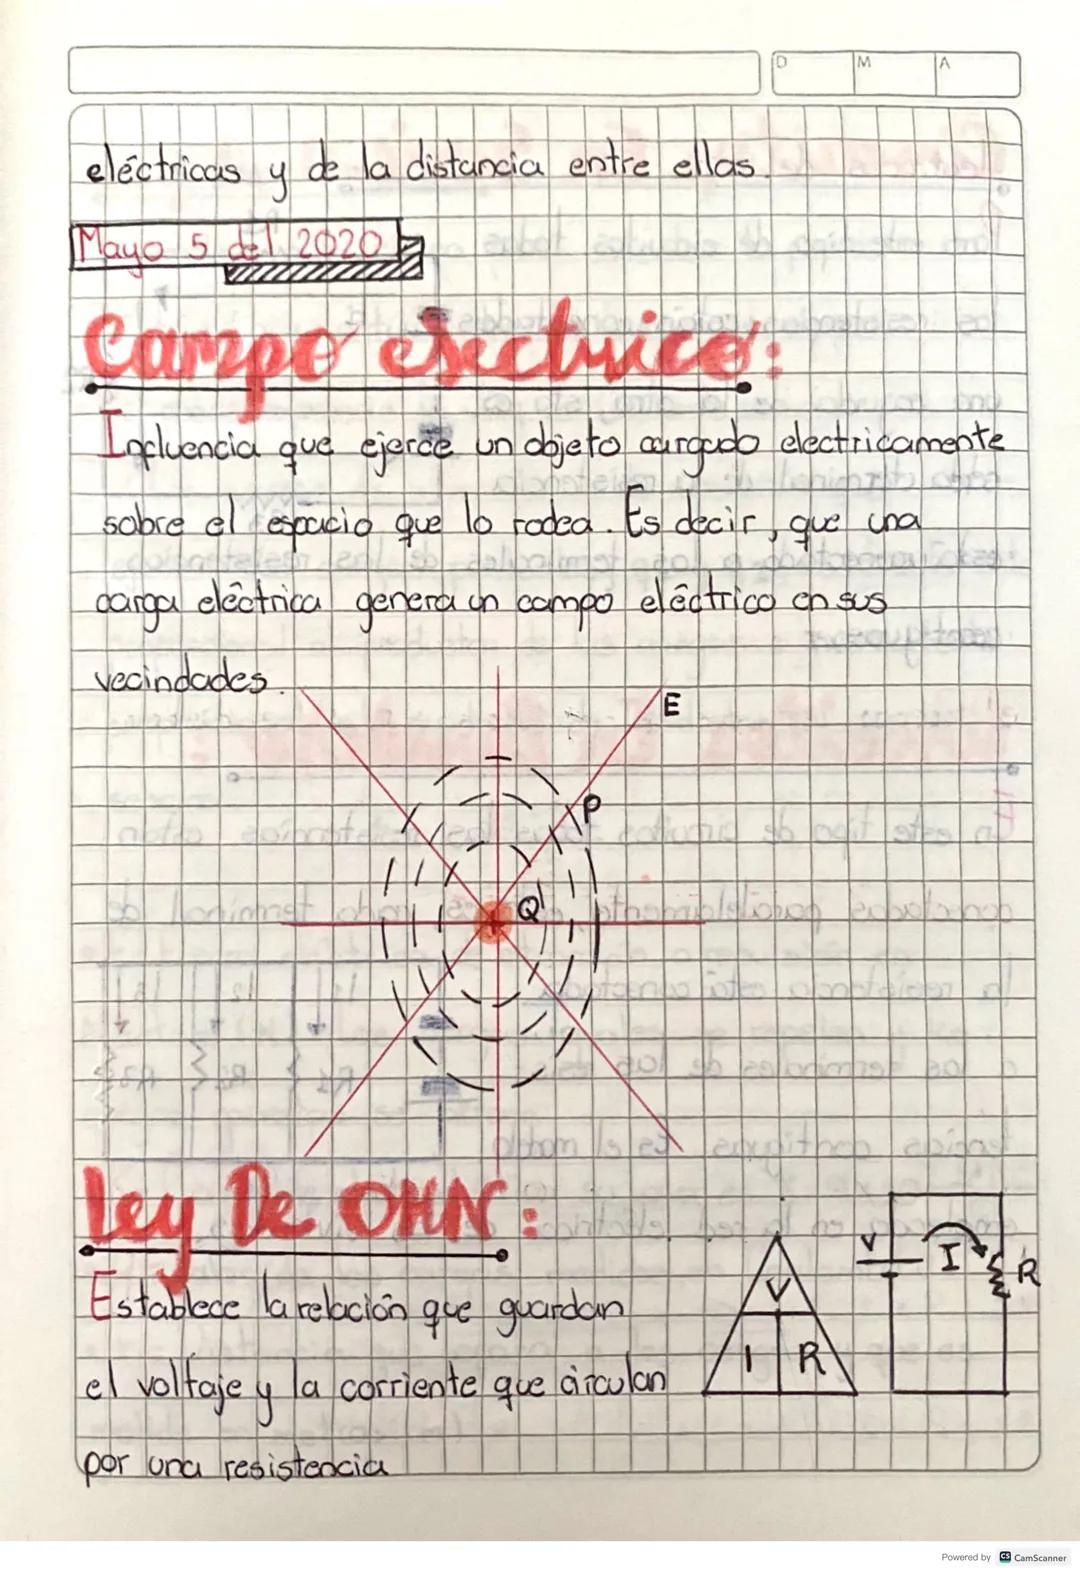 D M A
eléctricas y de la distancia entre ellas.
Mayo 5 del 2020
Campo electrico:
Influencia que ejerce un objeto cargado electricamente
sobre el espacio que lo rodea. Es decir, que una
carga eléctrica genera un campo eléctrico en sus
vecindades.
E
P
Q
Ley De OHN:
V I R
V
I R
Establece la relación que guardan
el voltaje y la corriente que circulan
por una resistencia
Powered by CS CamScanner